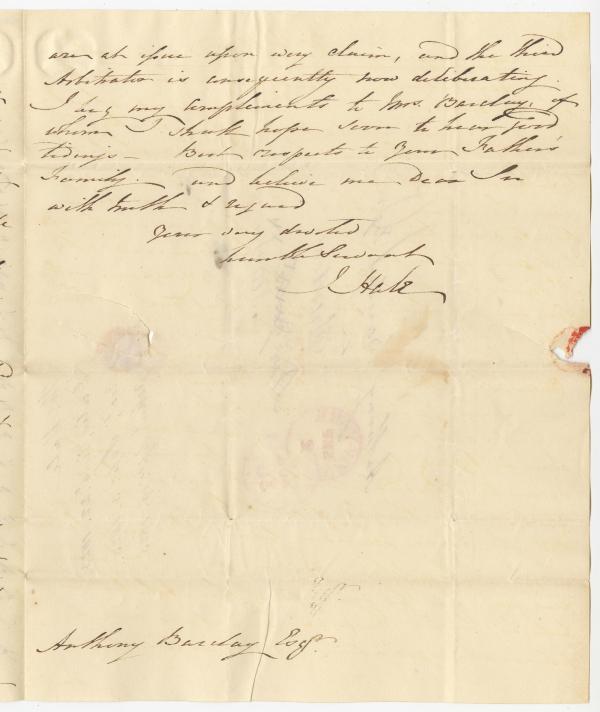 are at issue upon every claim, and the third
Arbitrator is consequently now deliberating.
I beg my compliments to Mrs. Barclay, of
whom I shall hope soon to hear good
tidings – Best respects to your Father's
Family. And believe me Dear Sir
with truth & regard
Your very devoted
humble Servant
J. Hale
Anthony Barclay Esqr.